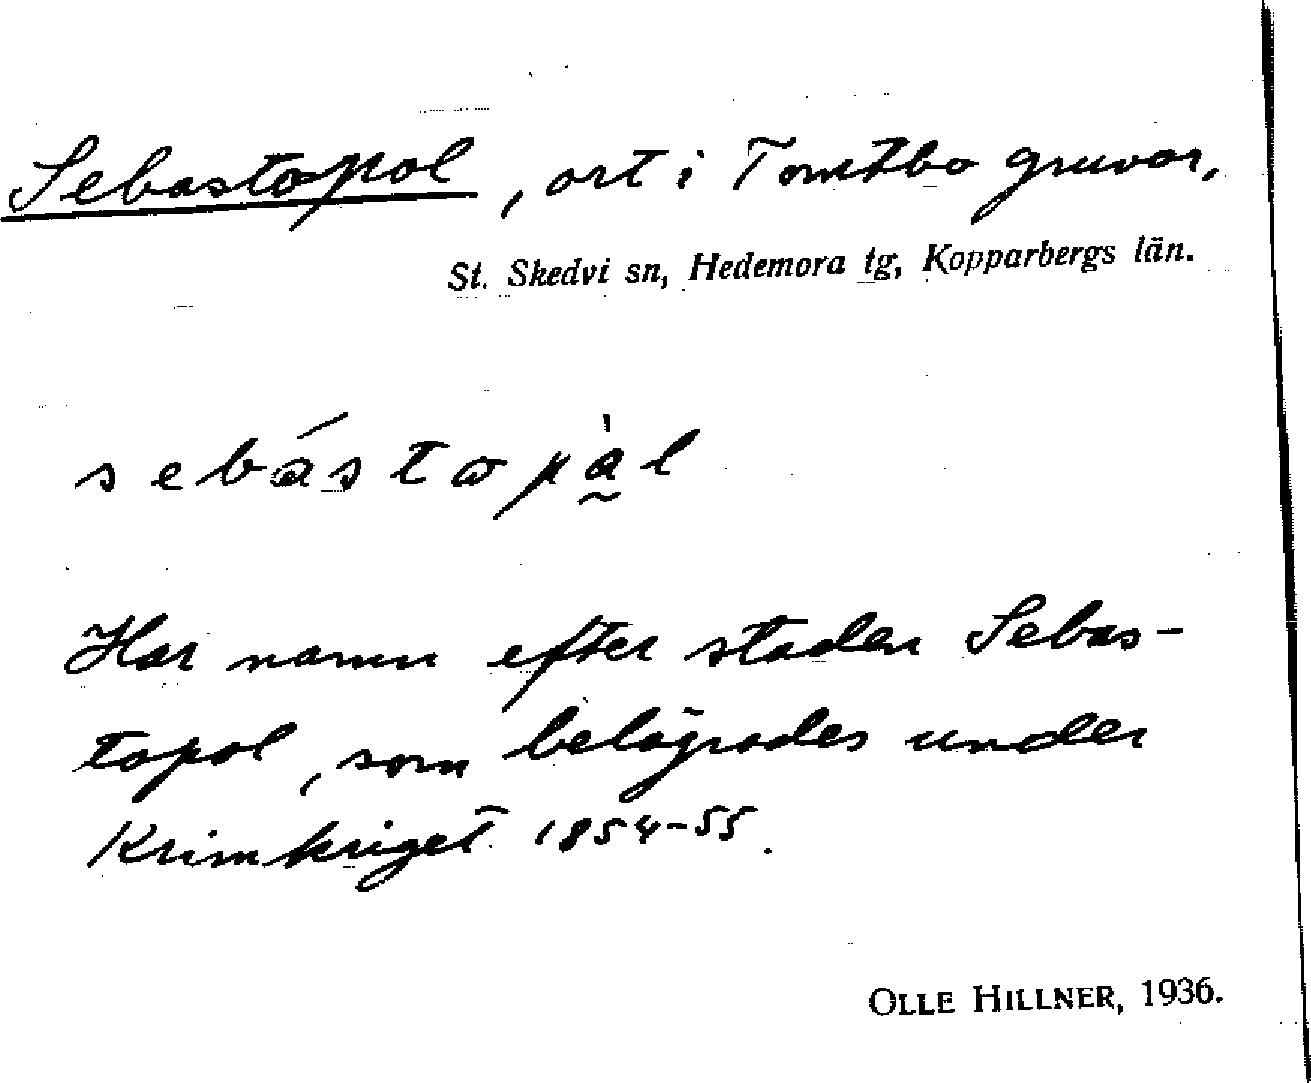 Sebastopol, ort i Tomtbo gruvor,
St. Skedvi sn, Hedemora tg, Kopparbergs län.
sebástopå̀l
Har namn efter staden Sebas-
topol, som belägrades under
Krimkriget 1854-55.
OLLE HILLNER, 1936.